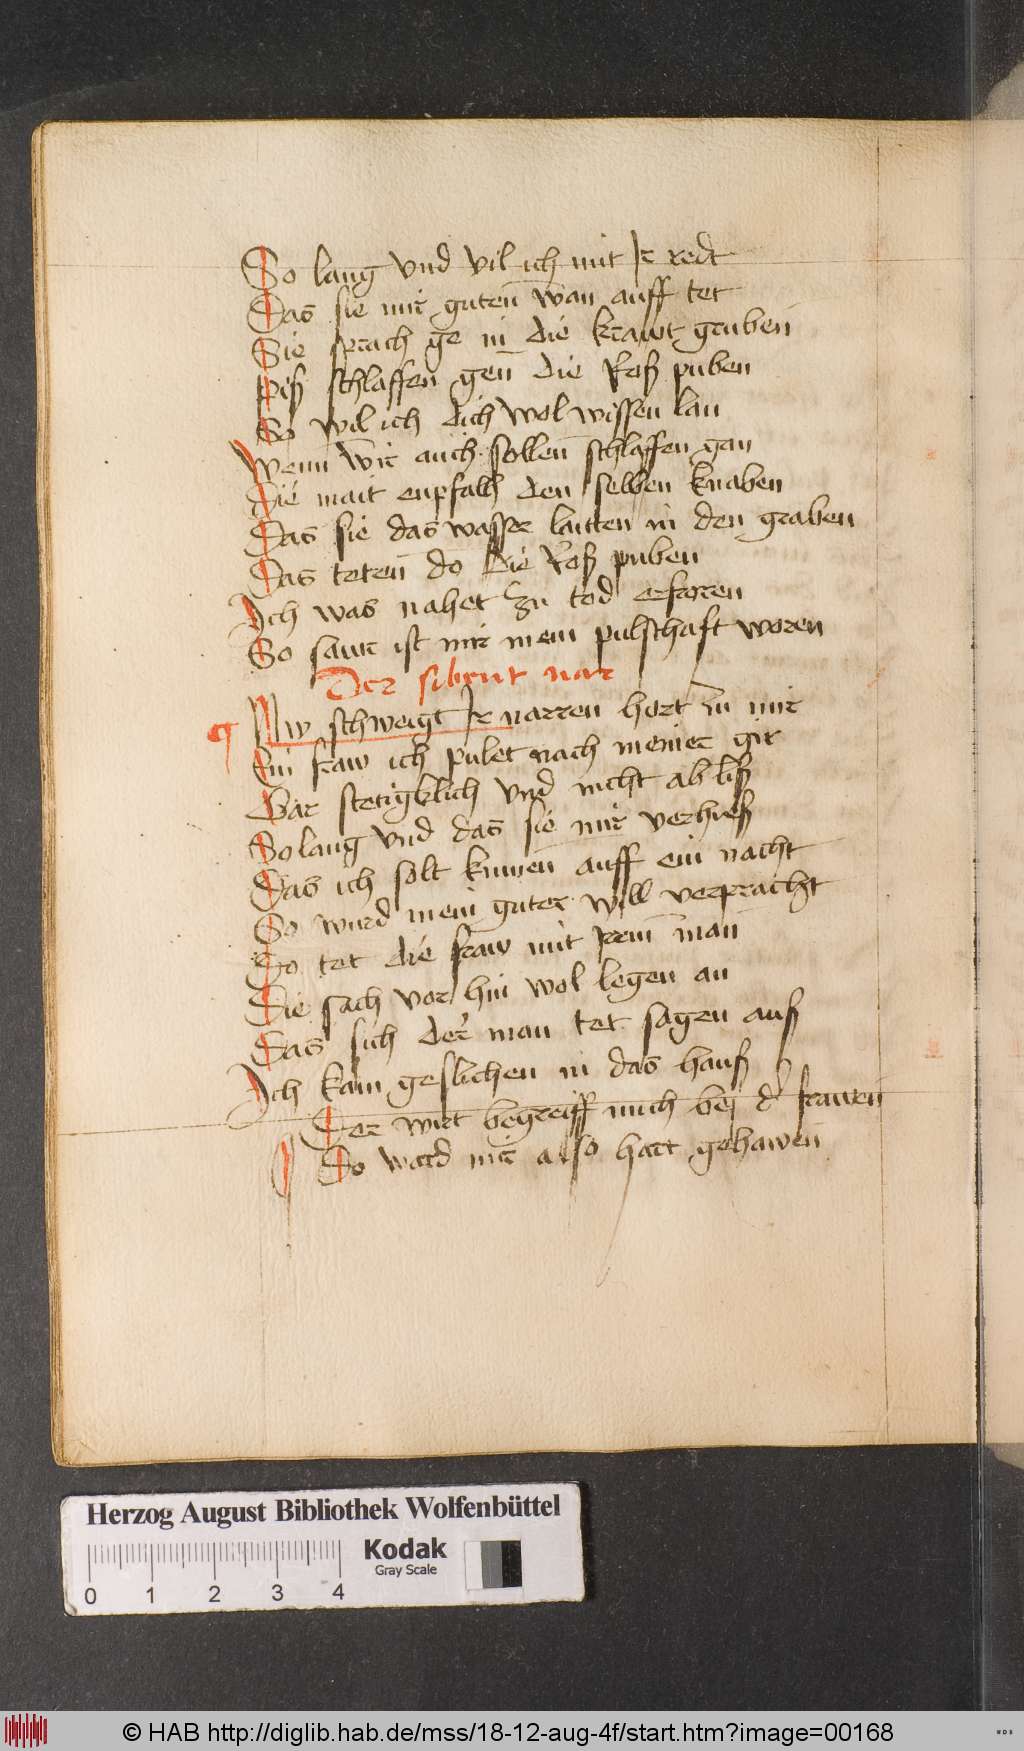 So lang vnd vil ich mit Ir redt
Das sie mir guten wan auff tet
Sie sprach ge in die krawt gruben
Piß schlaffen gen die Roß puben
So wil ich dich wol wissen lan
Wenn wir auch sollen schlaffen gan
Die mait enpfalh den selben knaben
Das sie das wasser laitten in den graben
Das teten do die Roß puben
Ich was nahet zu tod erfroren
So sawr ist mir mein pulschaft woren
Der sibent nar
Nw schweigt Ir narren hort zu mir
Ein fraw ich pulet nach meiner gir
Gar stetigklich vnd nicht ab ließ
So lang vnd das sie mir verhieß
Das ich solt kumen auff ein nacht
So wurd mein guter will verpracht
Do tet die fraw mit Irem man
Die sach vor hin wol legen an
Das sich der man tet sagen auß
Ich kam geslichen in das hauß
Der wirt begreiff mich bej der frawen
Do ward mir also hart gehawen
Herzog August Bibliothek Wolfenbüttel
Kodak
Gray Scale
0 1 2 3 4
© HAB http://diglib.hab.de/mss/18-12-aug-4f/start.htm?image=00168